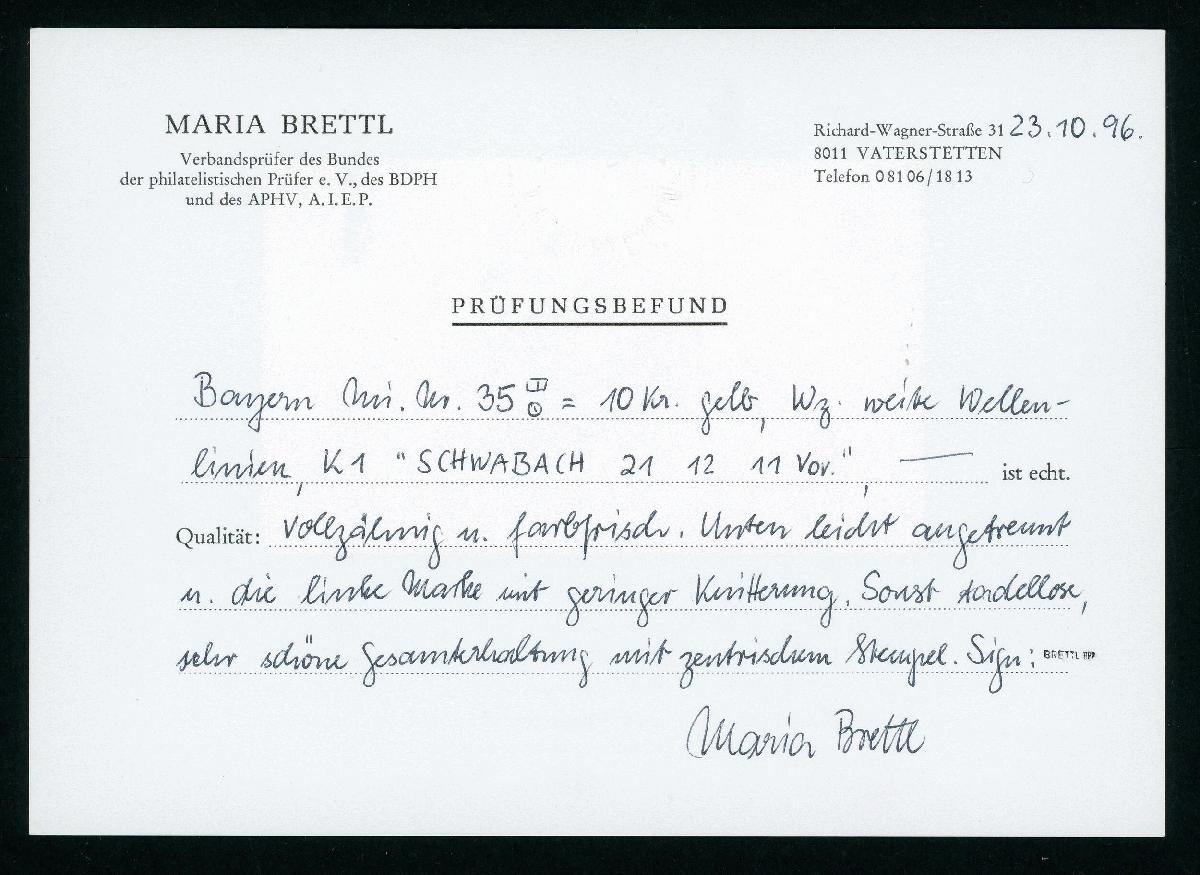 MARIA BRETTL
Verbandsprüfer des Bundes
der philatelistischen Prüfer e. V., des BDPH
und des APHV, A.I.E.P.
Richard-Wagner-Straße 31 23.10.96.
8011 VATERSTETTEN
Telefon 08106/1813
PRÜFUNGSBEFUND
Bayern Mi. Nr. 35 = 10 Kr. gelb, Wz. weite Wellen-
linien, K1 "SCHWABACH 21 12 11 Vor.", ist echt.
Qualität: Vollzähnig u. farbfrisch. Unten leicht angetrennt
u. die linke Marke mit geringer Knitterung. Sonst tadellose,
sehr schöne Gesamterhaltung mit zentrischem Stempel. Sign: BRETTL BPP
Maria Brettl